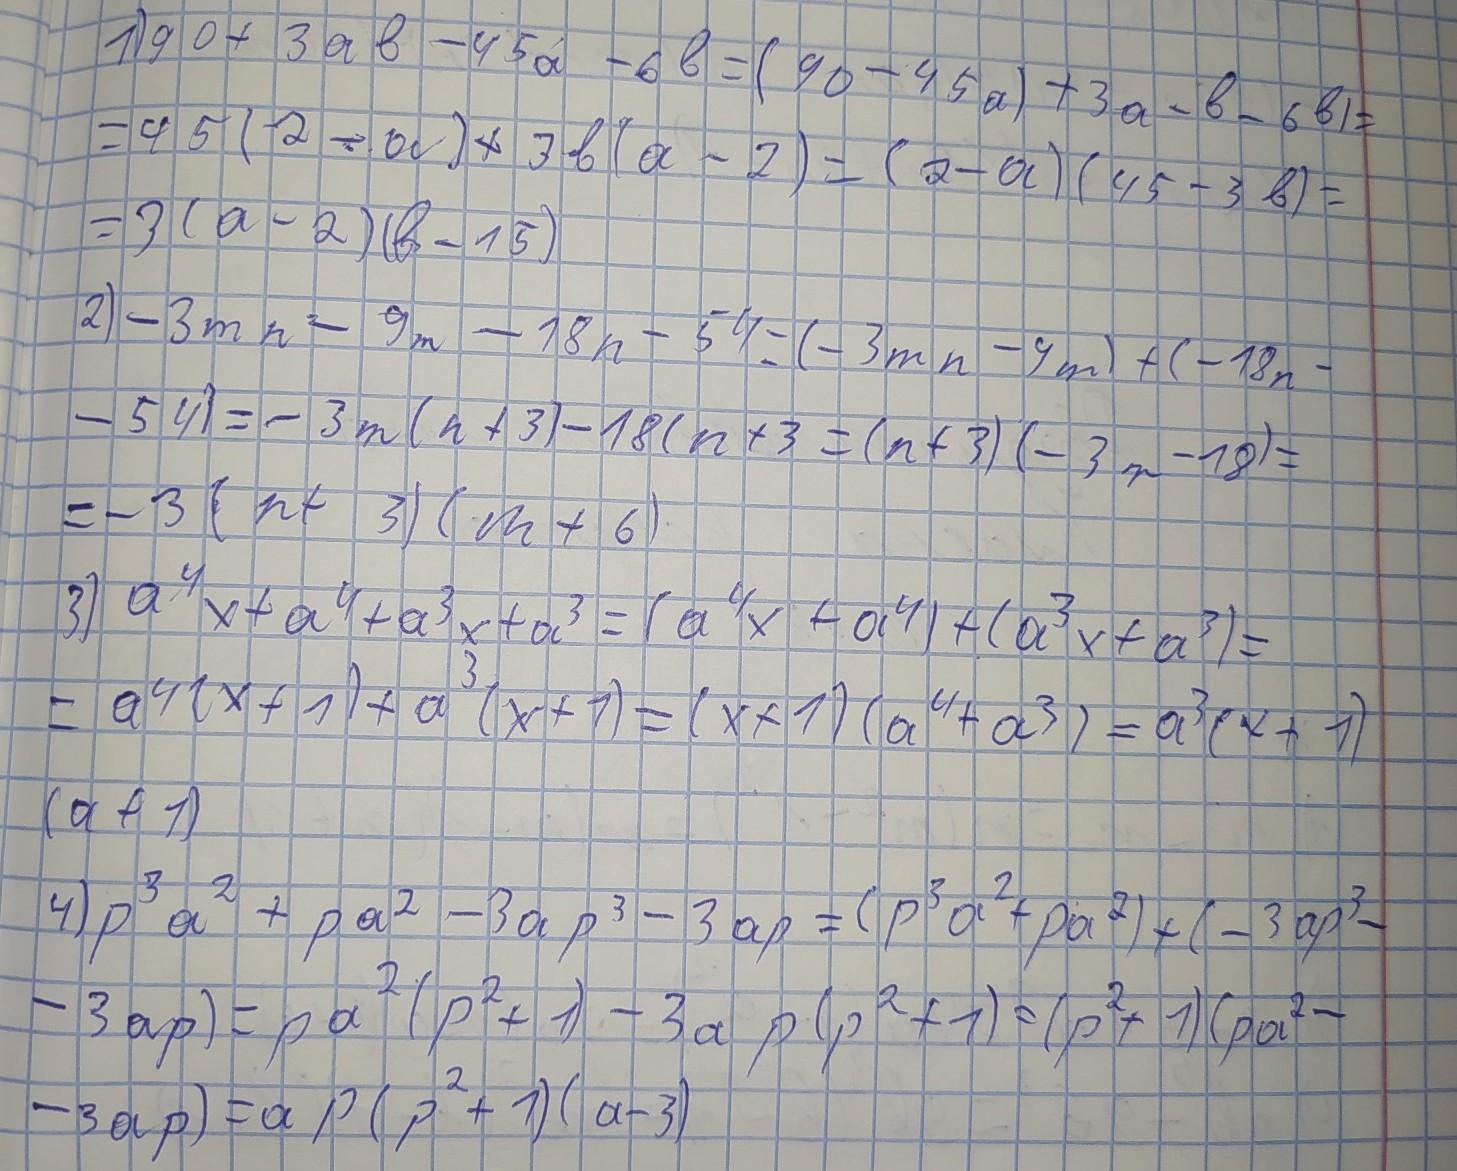 1) 90 + 3ab - 45a - 6b = (90 - 45a) + 3a - b - 6b) =
= 45(2 - a) + 3b(a - 2) = (2 - a)(45 - 3b) =
= 3(a - 2)(b - 15)
2) - 3mn - 9m - 18n - 54 = (- 3mn - 9m) + (- 18n -
- 54) = - 3m(n + 3) - 18(n + 3 = (n + 3)(- 3m - 18) =
= - 3(n + 3)(m + 6)
3) a⁴x + a⁴ + a³x + a³ = (a⁴x + a⁴) + (a³x + a³) =
= a⁴(x + 1) + a³(x + 1) = (x + 1)(a⁴ + a³) = a³(x + 1)
(a + 1)
4) p³a² + pa² - 3ap³ - 3ap = (p³a² + pa²) + (- 3ap³ -
- 3ap) = pa²(p² + 1) - 3ap(p² + 1) = (p² + 1)(pa² -
- 3ap) = ap(p² + 1)(a - 3)